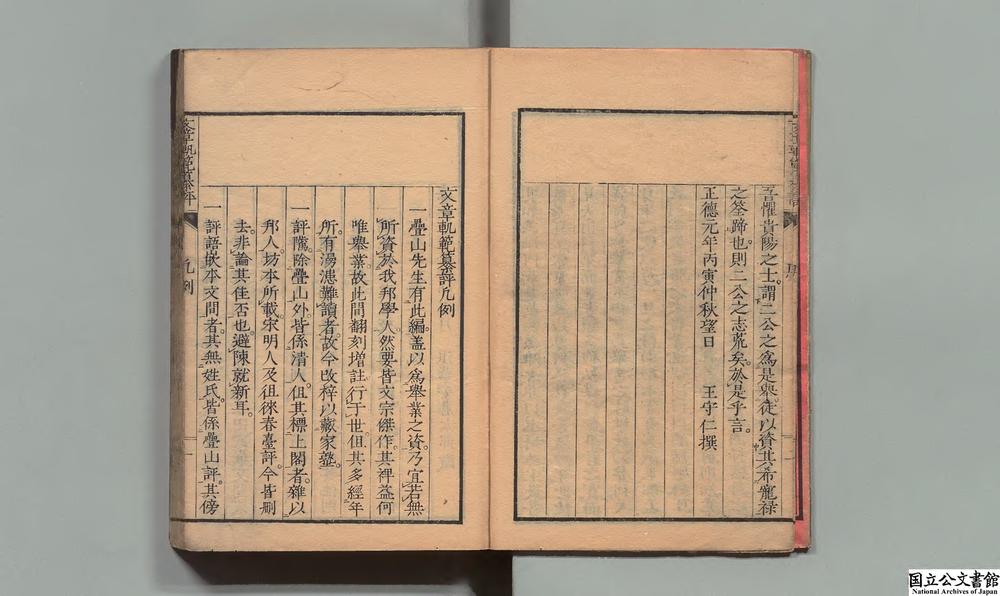 吾懼貴陽之士。謂二公之爲是擧。徒以資其希寵祿
之筌蹄也。則二公之志荒矣。於是乎言。
正德元年丙寅仲秋望日　　王守仁撰
文章軌範纂評凡例
一疊山先生有此編。蓋以爲擧業之資。乃宜若無
所資於我邦學人。然要皆文宗傑作。其裨益何
唯擧業。故此間翻刻增註。行于世。但其多經年
所。有漫漶難讀者。故今改梓以藏家塾。
一評隲。除疊山外。皆係淸人。但其標上閣者。雜以
邦人。坊本所載。宋明人及徂徠春臺評。今皆刪
去。非論其佳否也。避陳就新耳。
一評語嵌本文間者。其無姓氏。皆係疊山評。其傍
文章軌範纂評
凡例
一
国立公文書館
National Archives of Japan